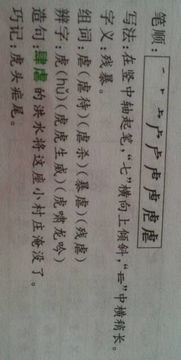 笔顺:丨 ⺊ 广 虍 虐
写法:在竖中轴起笔,“七”横向上倾斜,“𫜹”中横稍长。
字义:残暴。
组词:虐(虐待)(虐杀)(暴虐)(残虐)
辨字:虎(hǔ)(虎虎生威)(虎啸龙吟)
造句:肆虐的洪水将这座小村庄淹没了。
巧记:虎头疟尾。